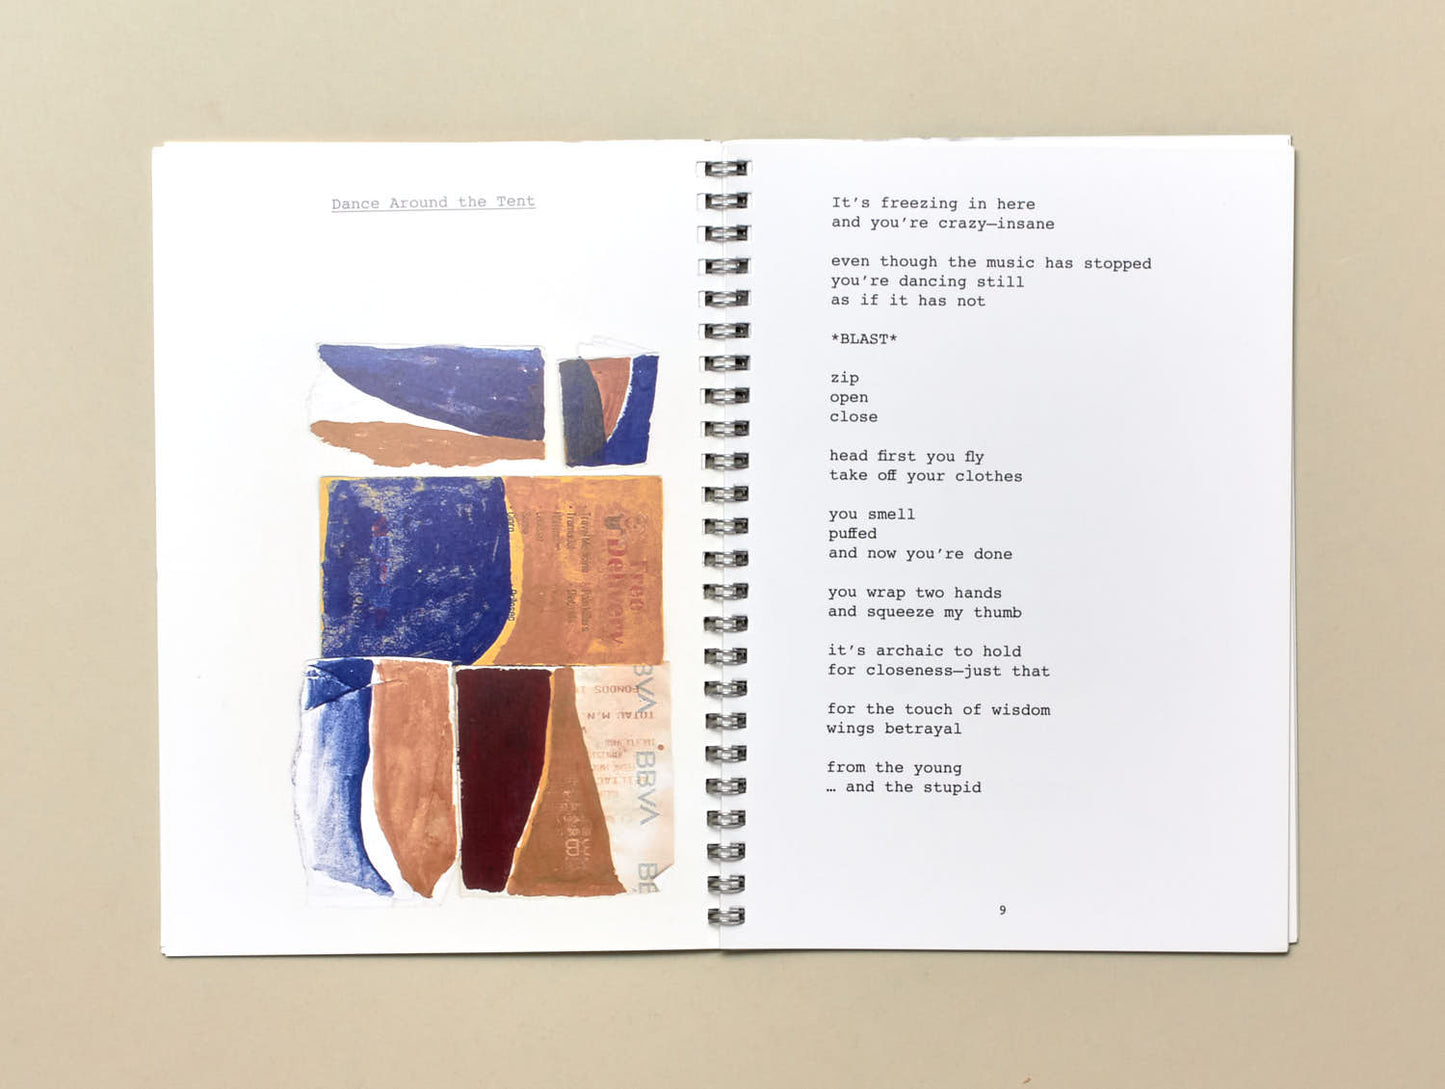 Dance Around the Tent
Free
Delivery
BBVA
FONDOS
TOTAL M.N.
BBVA
It’s freezing in here
and you’re crazy—insane
even though the music has stopped
you’re dancing still
as if it has not
*BLAST*
zip
open
close
head first you fly
take off your clothes
you smell
puffed
and now you’re done
you wrap two hands
and squeeze my thumb
it’s archaic to hold
for closeness—just that
for the touch of wisdom
wings betrayal
from the young
… and the stupid
9